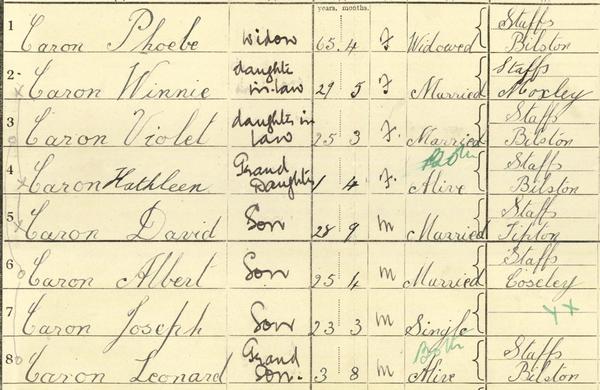 years. months.
1 Caron Phoebe widow 65 4 F Widowed Staffs Bilston
2 Caron Winnie daughter in-law 29 5 F Married Staffs Moxley
3 Caron Violet daughter in law 25 3 F. Married Staffs Bilston
4 Caron Kathleen Grand Daughter 1 4 F Both Alive Staffs Bilston
5 Caron David Son 28 9 M Married Staffs Tipton
6 Caron Albert Son 25 4 M Married Staffs Coseley
7 Caron Joseph Son 23 3 M Single
8 Caron Leonard Grand Son. 3 8 M Both Alive Staffs Bilston